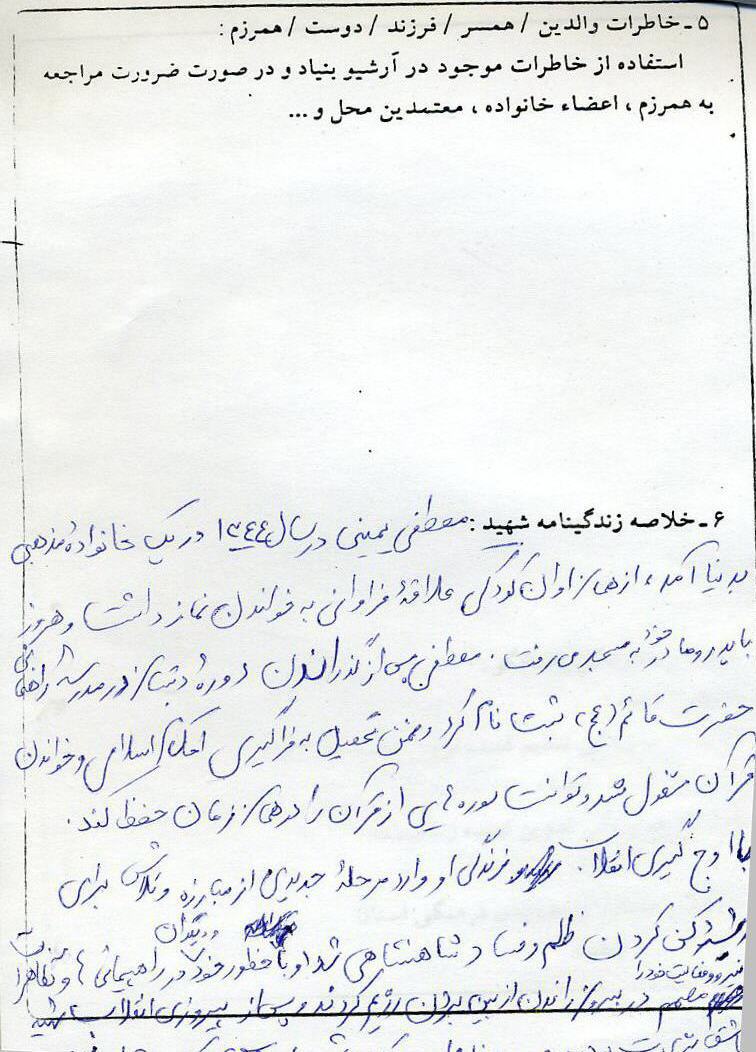 ۵ ـ خاطرات والدین / همسر / فرزند / دوست / همرزم :
استفاده از خاطرات موجود در آرشیو بنیاد و در صورت ضرورت مراجعه
به همرزم ، اعضاء خانواده ، معتمدین محل و ...
۶ ـ خلاصه زندگینامه شهید : مصطفی یمینی در سال ۱۳۴۴ در یک خانوادهٔ مذهبی
بدنیا آمد، از همان اوان کودکی علاقهٔ فراوانی به خواندن نماز داشت و هر روز
با پدر و مادر خود به مسجد می رفت . مصطفی پس از گذراندن دورهٔ دبستان در مدرسهٔ راهنمائی
حضرت قائم (عج) ثبت نام کرد و ضمن تحصیل به فراگیری احکام اسلامی و خواندن
قرآن مشغول شد و توانست سوره هایی از قرآن را در همان زمان حفظ کند .
با اوج گیری انقلاب زندگی او وارد مرحلهٔ جدیدی از مبارزه و تلاش برای
ریشه کن کردن ظلم و فساد شاهنشاهی شد او با حضور خود در راهپیمائی ها و تظاهرات
و دیگران
خود را
مهم در به بیرون راندن از بین بردن رژیم کردند و پس از پیروزی انقلاب